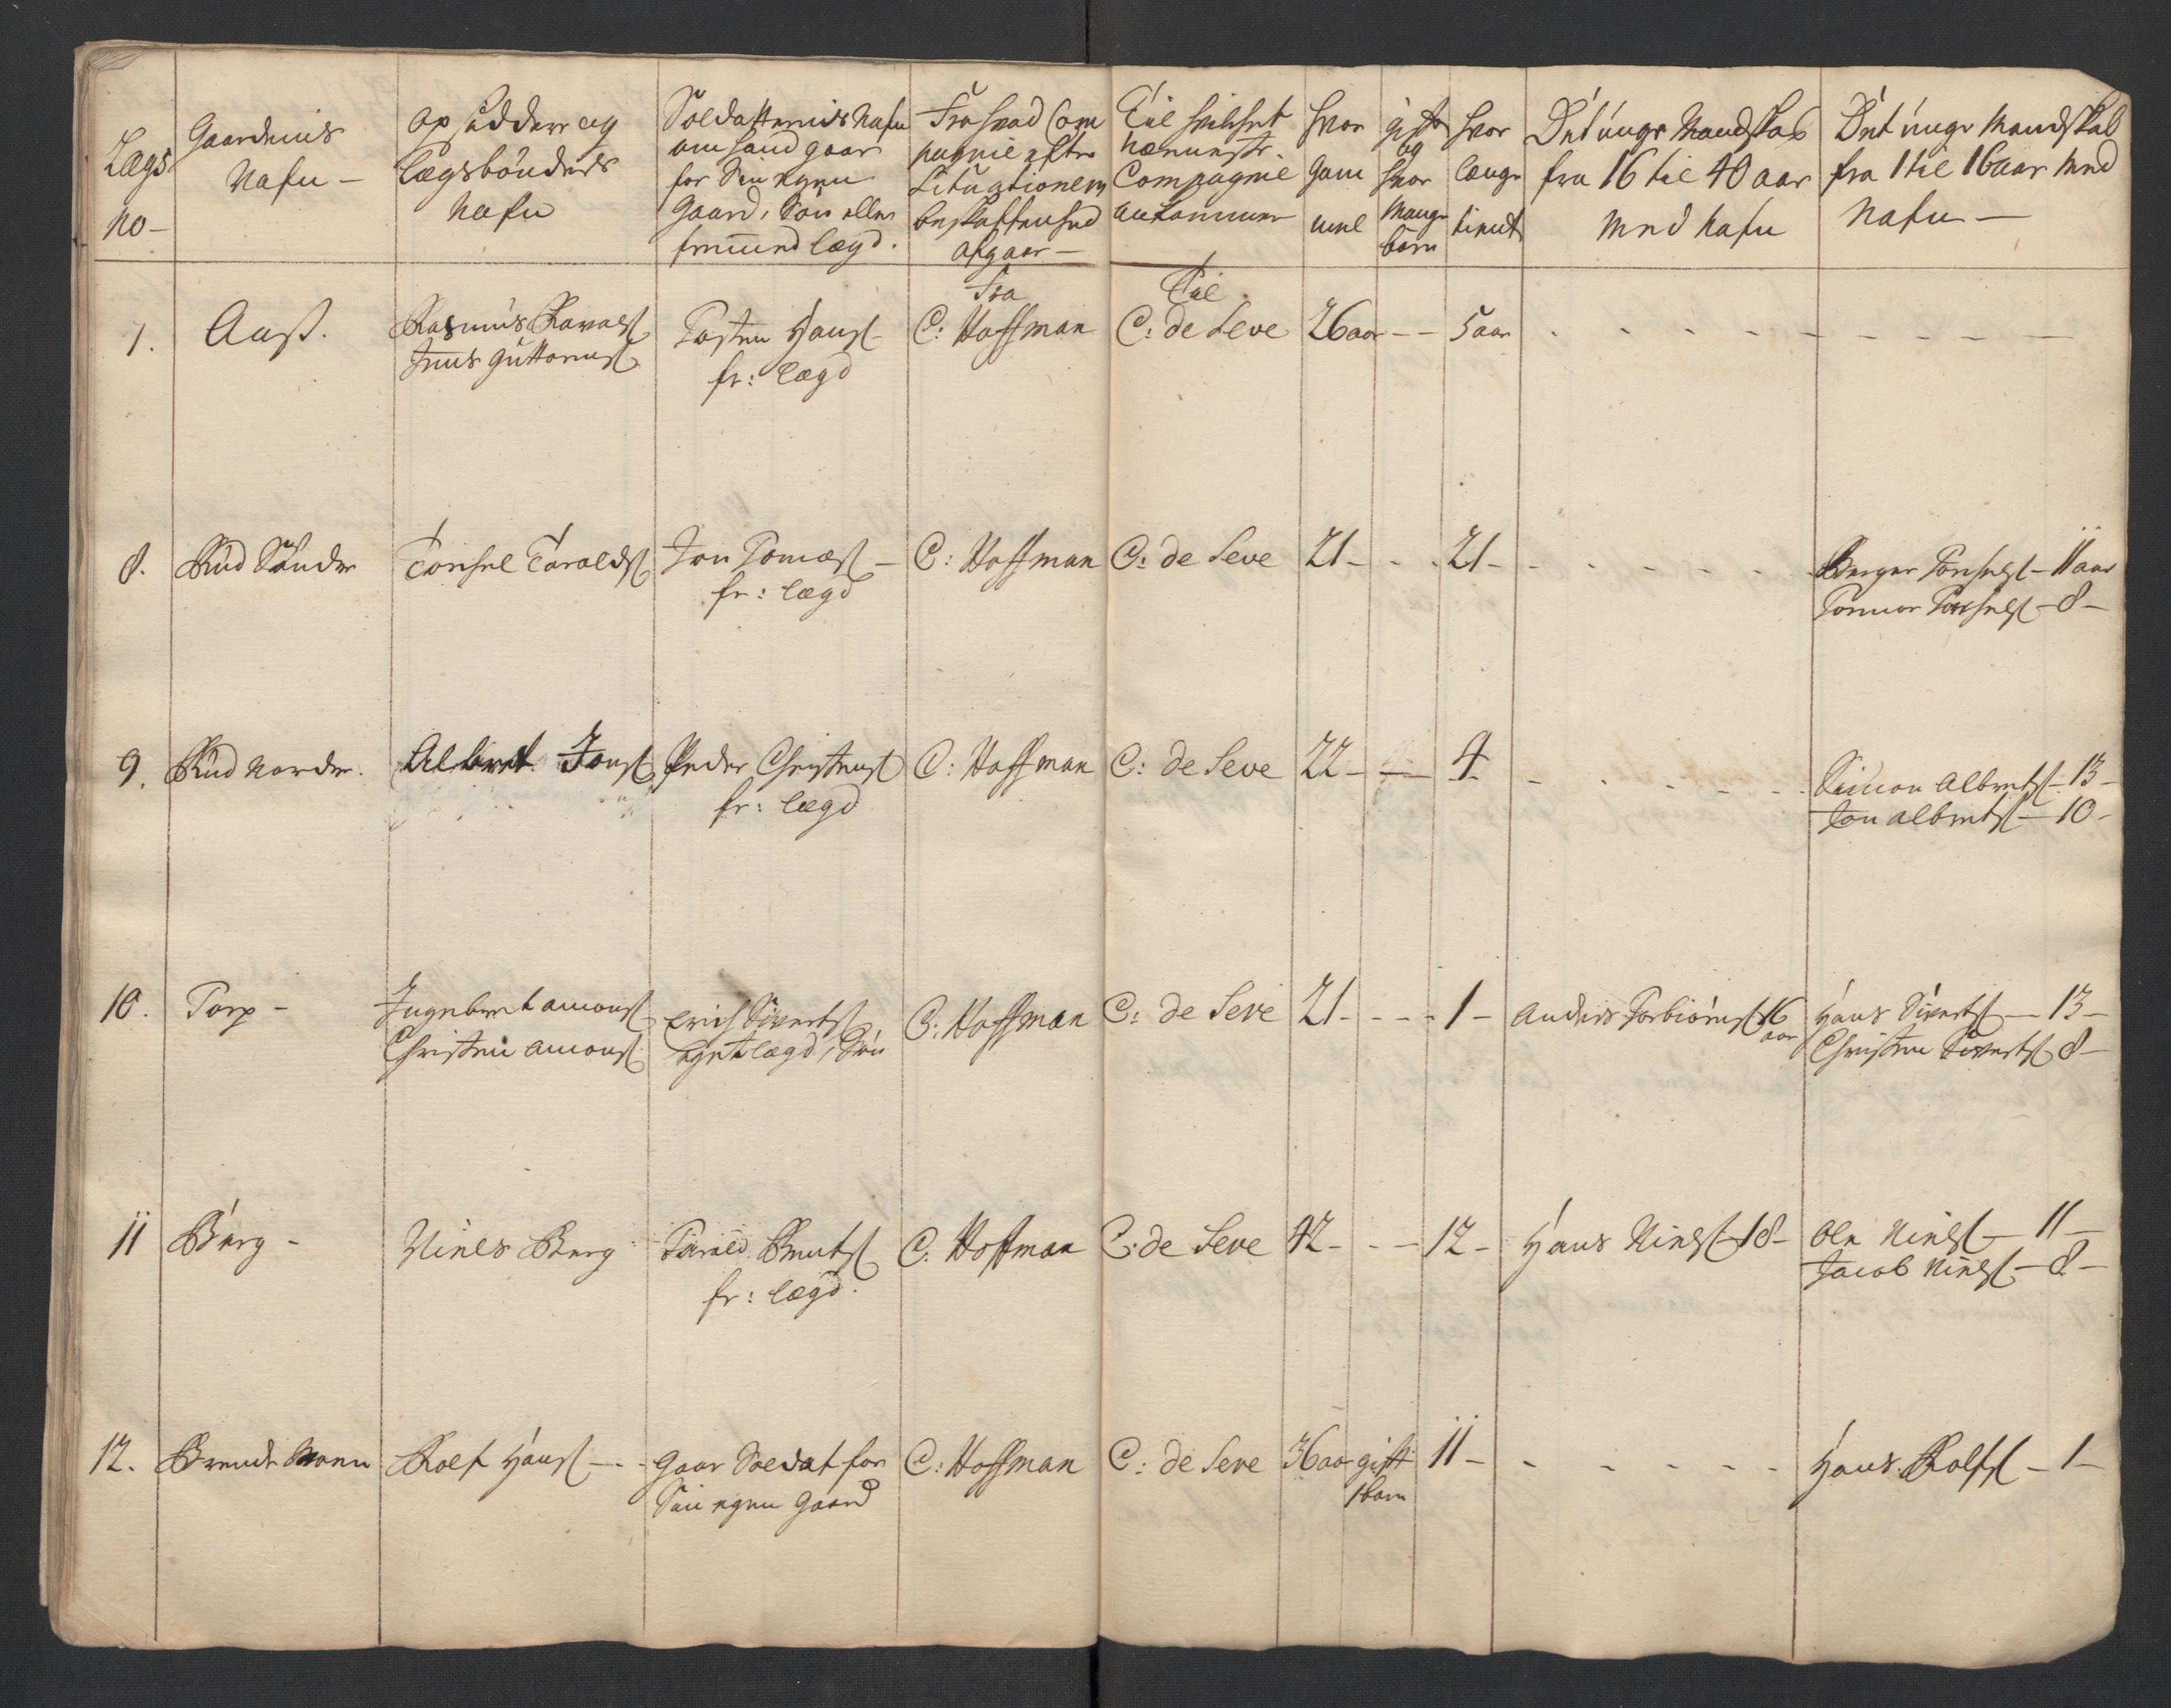 Lægs
No –
Gaardenis
Nafn –
Opsidder og
Lægsbönders
Nafn
Soldatternis Nafn
om hand gaar
for Sin egen
Gaard, Sön eller
fremmed lægd.
Fra hvad Com
pagnie efter
Situationens
beskaffenhed
afgaar –
Til hvilket
Compagnie
ankommer
hvor
gam
mel
gift
og
hvor
mange
börn
hvor
længe
tient
Det unge Mandskab
fra 16 til 40 aar
med Nafn
Det unge Mandskab
fra 1 til 16 aar med
Nafn –
7. Aaß. Rasmus
Jens Guttormß
Torsten Hanß
fr: lægd
Fra
C: Hoffman
Til
C: de Seve 26 aar – – 5 aar
8. Rud Sönder Torchel Taraldß Jon Tomæß –
fr: lægd
C: Hoffman C: de Seve 21 – 21 –
Berger Torchelß – 11 aar
Tormor Torchelß – 8 –
9. Rud Norder. Albret Jonß Peder Christenß
fr: lægd
C: Hoffman C: de Seve 22 – – 4
Simon Albretß – 13 –
Jon Albretß – 10 –
10. Torp –
Ingebret Amonß
Christen Amonß
Erich Sivertß,
eget lægd, Sön
C: Hoffman C: de Seve 21 – – – 1 – Anders Torbiörnß 16
aar
Hans Sivertß – 13 –
Christen Sivertß 8 –
11 Berg – Niels Berg Tarald Knutß
fr: lægd.
C. Hoffman C: de Seve 42 – – – 12 – Hans Nielß – 18 –
Ole Nielß – 11 –
Jacob Nielß – 8 –
12. Brende Moen Rolf Hanß – – Gaar Soldat for
Sin egen Gaard
C: Hoffman C: de Seve 36 aar gift
1 barn
11 –
Hans Rolfß – 1 –